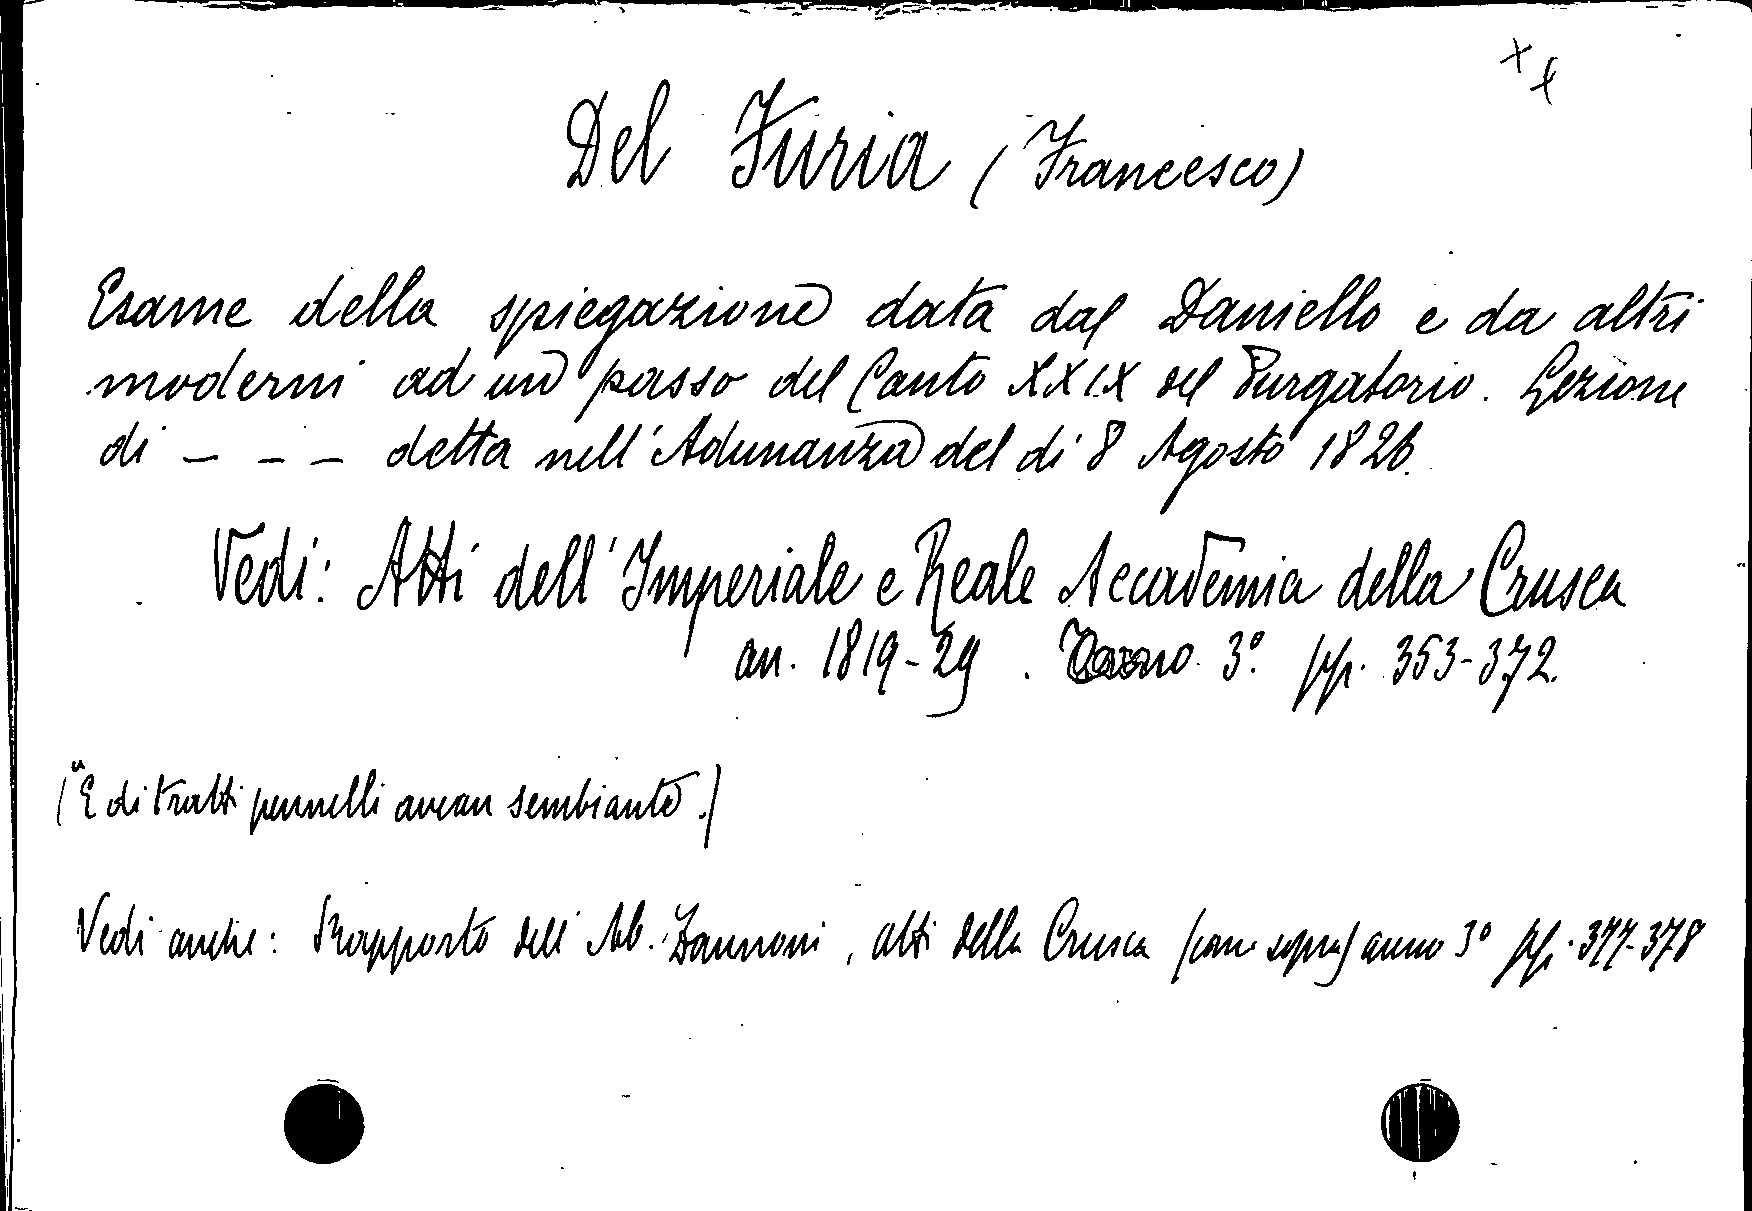 Del Furia (Francesco)
Esame della spiegazione data dal Daniello e da altri
moderni ad un passo del Canto XXIX del Purgatorio. Lezione
di - - - detta nell'Adunanza del dì 8 Agosto 1826.
Vedi: Atti dell'Imperiale e Reale Accademia della Crusca
an. 1819-29. Tomo 3º. pp. 353-372.
("E di tratti pennelli avean sembiante.)
Vedi anche: Rapporto dell'Ab. Zannoni, atti della Crusca (come sopra) anno 3º pp. 377-378